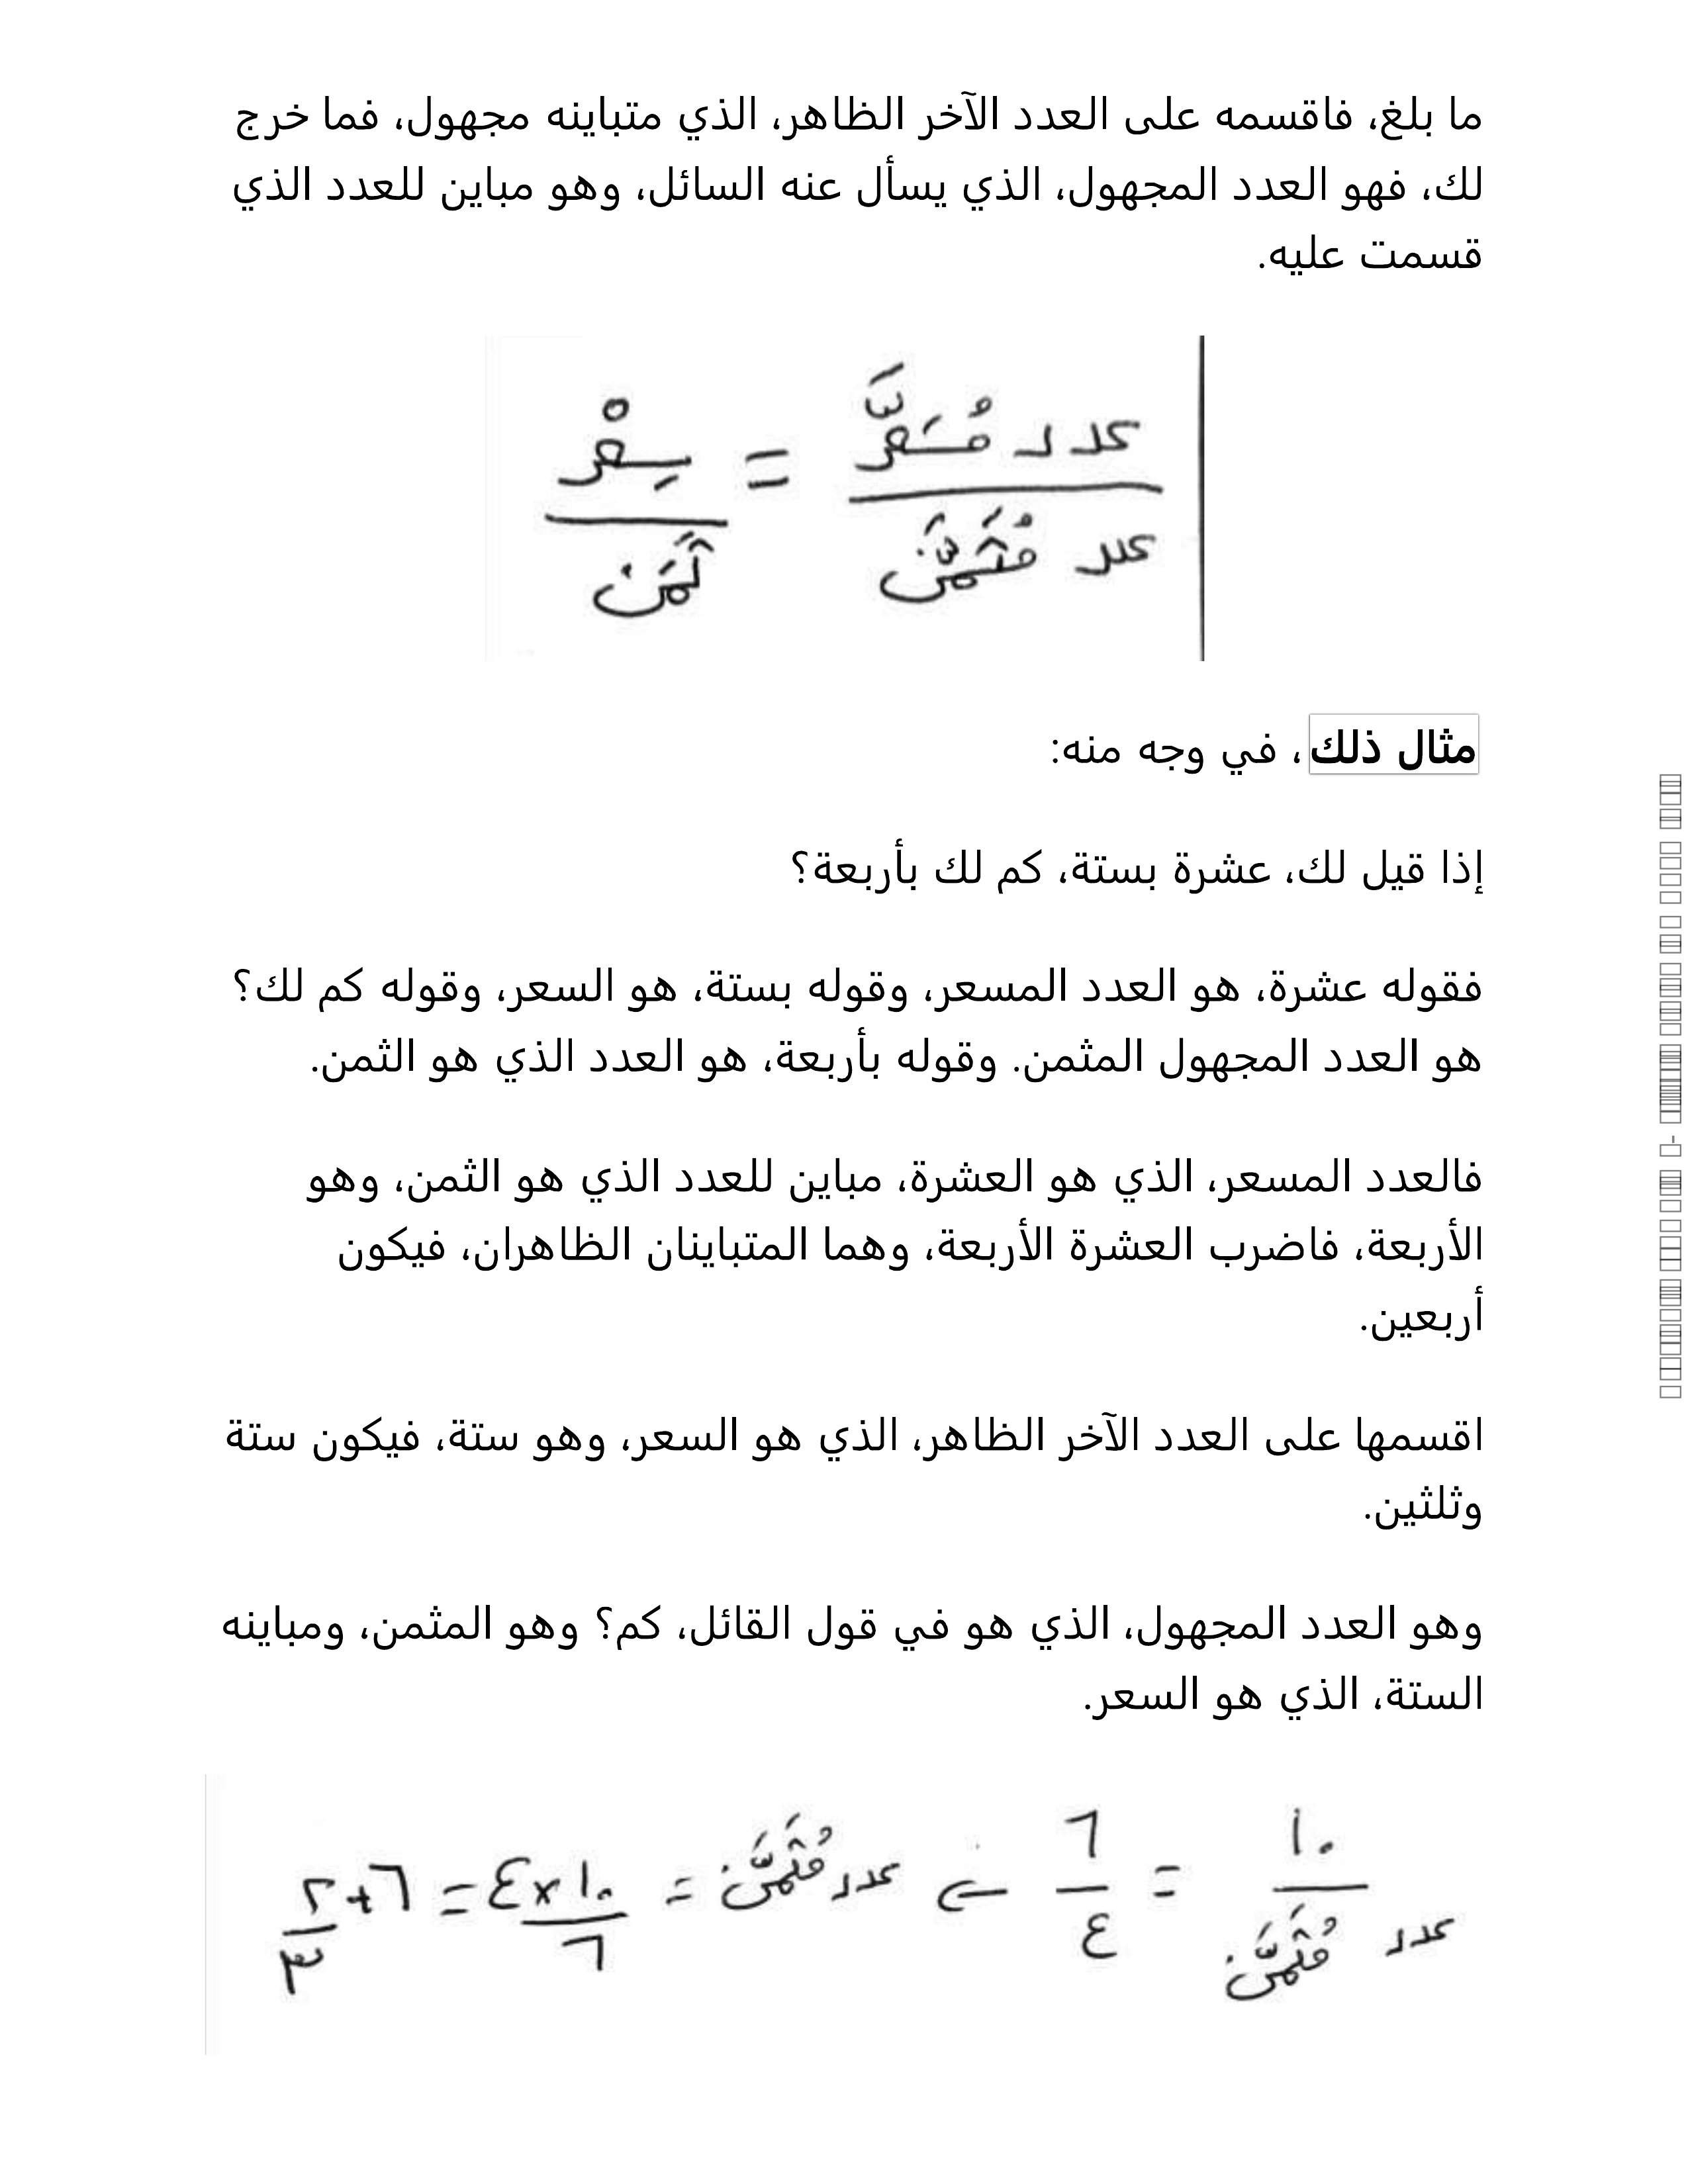 ما بلغ، فاقسمه على العدد الآخر الظاهر، الذي متباينه مجهول، فما خرج
لك، فهو العدد المجهول، الذي يسأل عنه السائل، وهو مباين للعدد الذي
قسمت عليه.
عدد مُسَعَّر = سِعْر
عدد مُثَمَّن ثَمَن
مثال ذلك، في وجه منه:
إذا قيل لك، عشرة بستة، كم لك بأربعة؟
فقوله عشرة، هو العدد المسعر، وقوله بستة، هو السعر، وقوله كم لك؟
هو العدد المجهول المثمن. وقوله بأربعة، هو العدد الذي هو الثمن.
فالعدد المسعر، الذي هو العشرة، مباين للعدد الذي هو الثمن، وهو
الأربعة، فاضرب العشرة الأربعة، وهما المتباينان الظاهران، فيكون
أربعين.
اقسمها على العدد الآخر الظاهر، الذي هو السعر، وهو ستة، فيكون ستة
وثلثين.
وهو العدد المجهول، الذي هو في قول القائل، كم؟ وهو المثمن، ومباينه
الستة، الذي هو السعر.
١٠ = ٦ ← عدد مُثَمَّن = ١٠ × ٤ = ٦ + ٢
عدد مُثَمَّن ٤ ٦ ٣